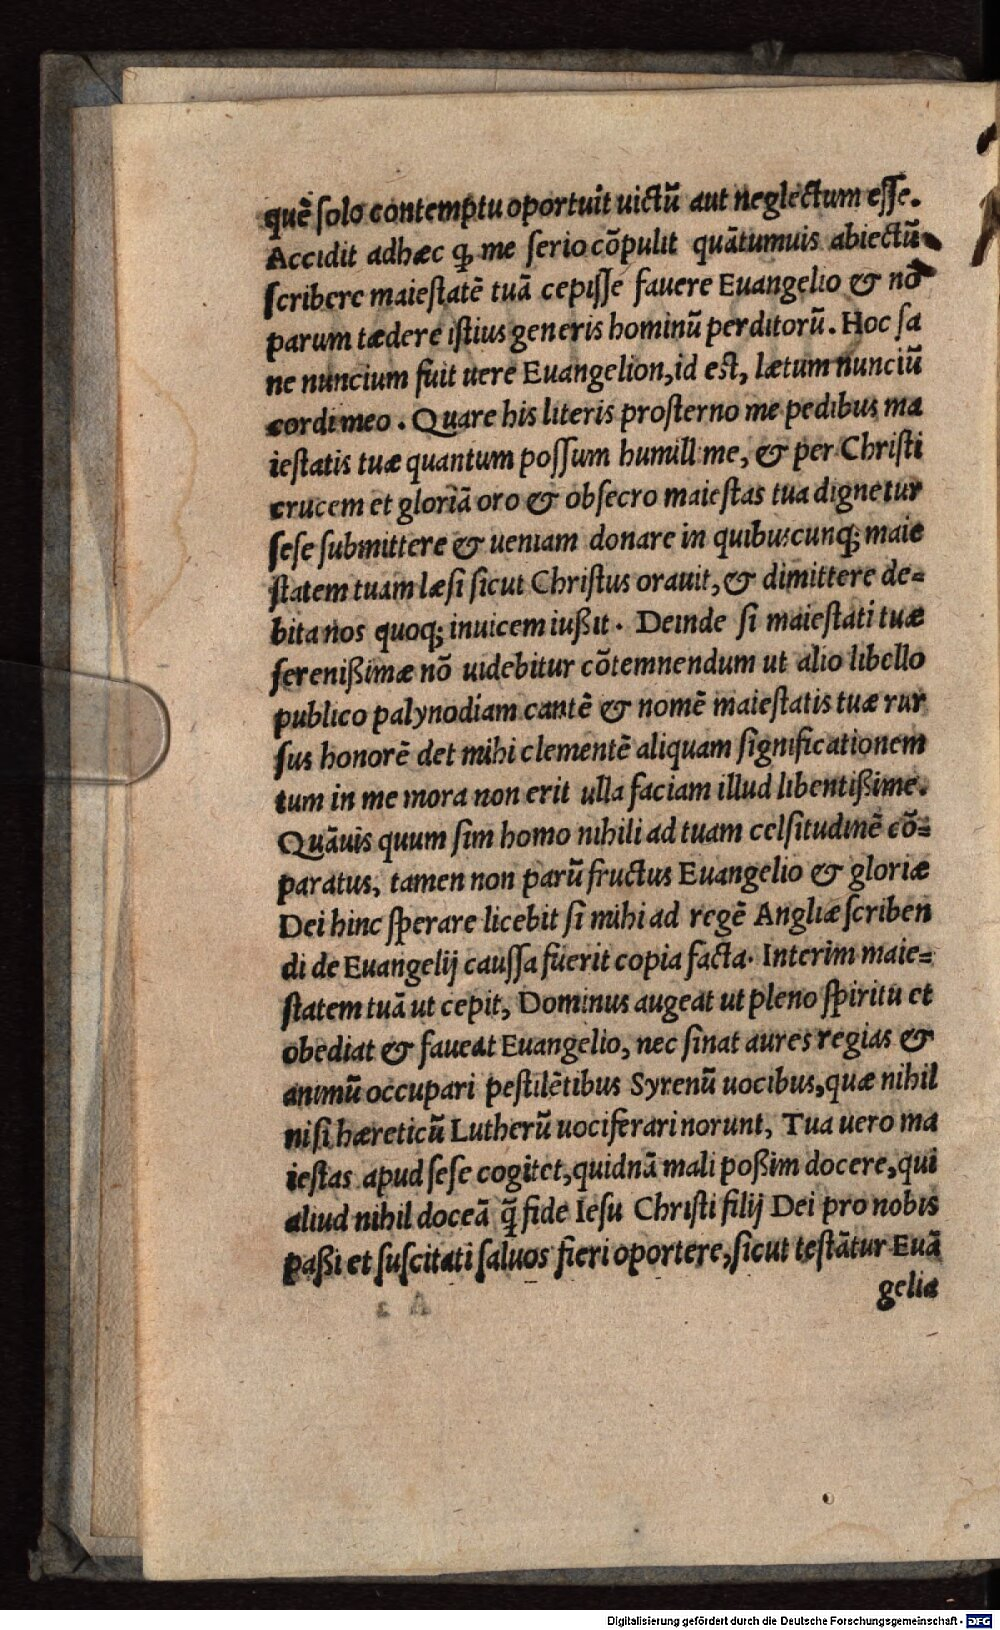 quē ſolo contemptu oportuit uictū aut neglectum eſſe.
Accidit adhæc ꝙ me ſerio cōpulit quātumuis abiectū
ſcribere maieſtatē tuā cepiſſe fauere Euangelio & nō
parum tædere iſtius generis hominū perditorū. Hoc ſa
ne nuncium fuit uere Euangelion, id eſt, lætum nunciū
cordi meo. Quare his literis proſterno me pedibus ma
ieſtatis tuæ quantum poſſum humillime, & per Chriſti
crucem et gloriā oro & obſecro maieſtas tua dignetur
ſeſe ſubmittere & ueniam donare in quibuſcunq; maie
ſtatem tuam læſi ſicut Chriſtus orauit, & dimittere de=
bita nos quoq; inuicem iußit. Deinde ſi maieſtati tuæ
ſerenißimæ nō uidebitur cōtemnendum ut alio libello
publico palynodiam cantē & nomē maieſtatis tuæ rur
ſus honorē det mihi clementē aliquam ſignificationem
tum in me mora non erit ulla faciam illud libentißime.
Quāuis quum ſim homo nihili ad tuam celſitudinē cō=
paratus, tamen non parū fructus Euangelio & gloriæ
Dei hinc ſperare licebit ſi mihi ad regē Angliæ ſcriben
di de Euangelij cauſſa fuerit copia facta. Interim maie=
ſtatem tuā ut cepit, Dominus augeat ut pleno ſpiritu et
obediat & faueat Euangelio, nec ſinat aures regias &
animū occupari peſtilētibus Syrenū uocibus, quæ nihil
niſi hæreticū Lutherū uociferari norunt, Tua uero ma
ieſtas apud ſeſe cogitet, quidnā mali poßim docere, qui
aliud nihil doceā q̄ fide Ieſu Chriſti filij Dei pro nobis
paßi et ſuſcitati ſaluos fieri oportere, ſicut teſtātur Euā
gelia
Digitalisierung gefördert durch die Deutsche Forschungsgemeinschaft - DFG